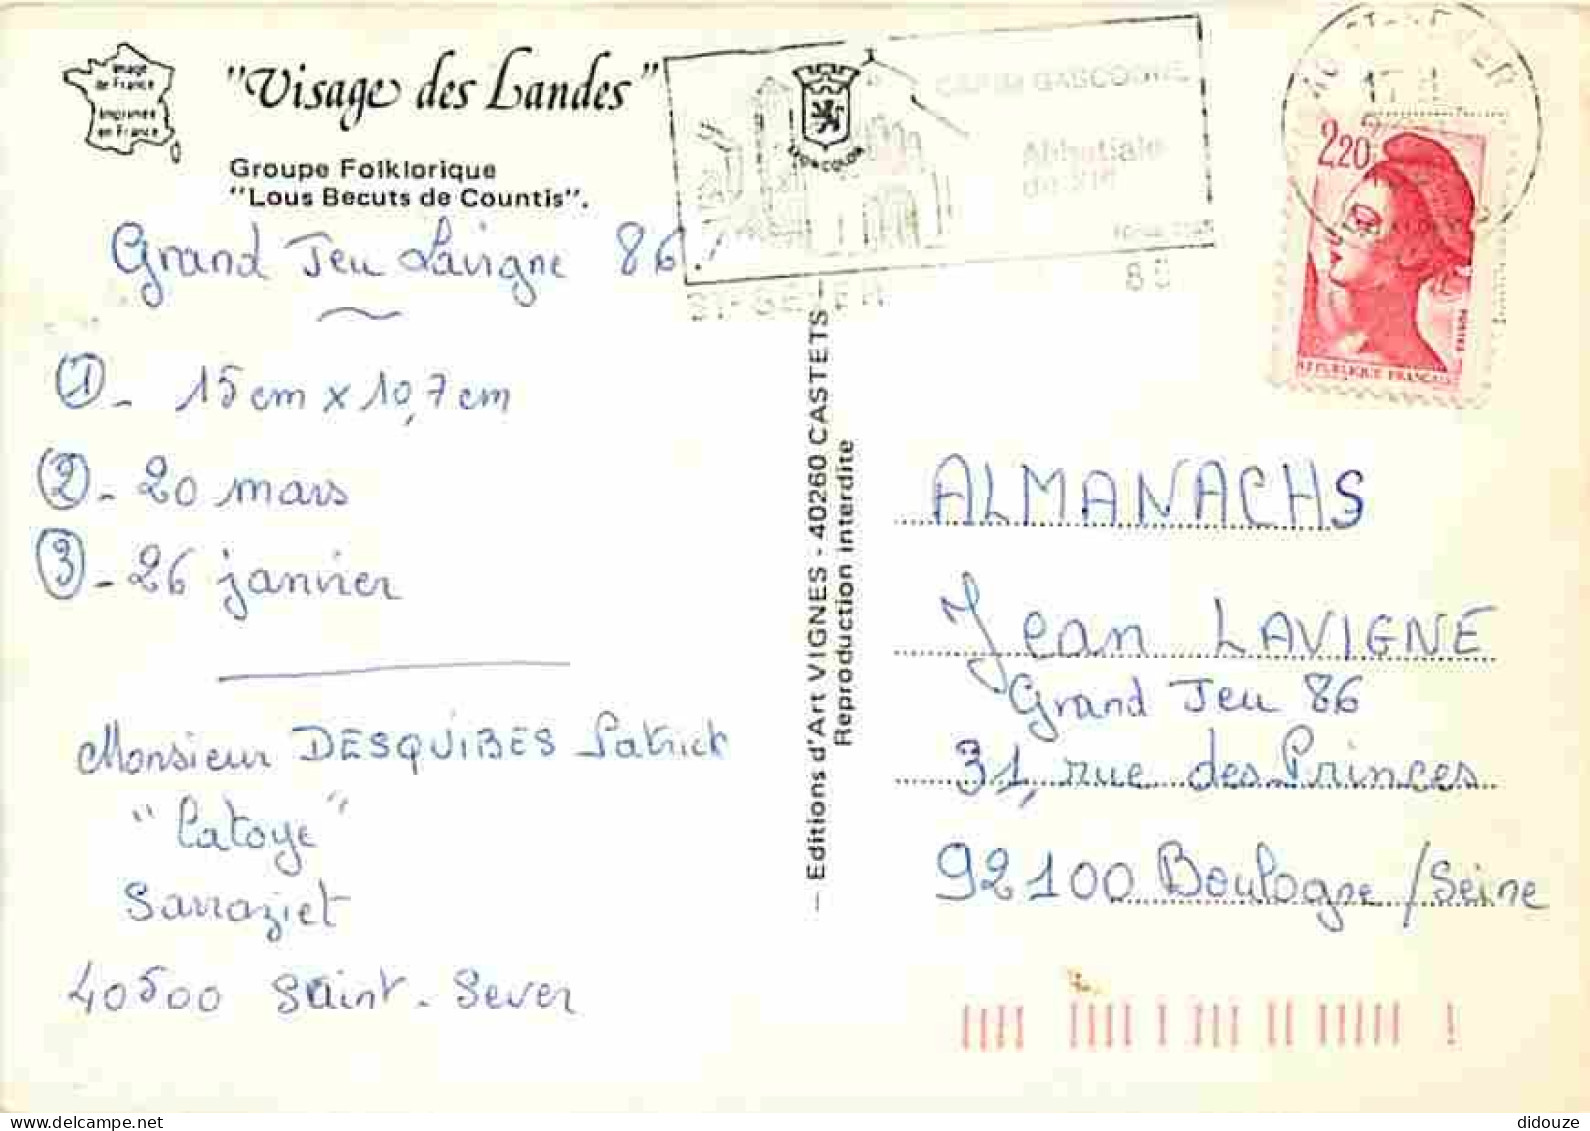 Image
de France
Imprimée
en France
"Visage des Landes"
Groupe Folklorique
"Lous Becuts de Countis".
Grand Jeu Lavigne 86.
1 - 15 cm x 10,7 cm
2 - 20 mars
3 - 26 janvier
Monsieur DESQUIBES Patrick
"Latoye"
Sarraziet
40500 Saint-Sever
— Editions d'Art VIGNES - 40260 CASTETS —
Reproduction interdite
LYONCOLOR
CAP DE GASCOGNE
Abbatiale
du XIe
ST-SEVER
2,20
POSTES
REPUBLIQUE FRANÇAISE
ALMANACHS
Jean LAVIGNE
Grand Jeu 86
31, rue des Princes
92100 Boulogne/Seine
didouze